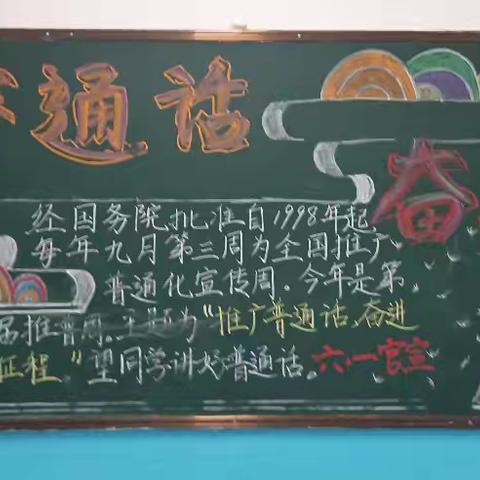 通话
奋
经国务院批准自1998年起,
每年九月第三周为全国推广
普通化宣传周。今年是第
届推普周,主题为“推广普通话,奋进
征程”望同学讲好普通话。六.一宣